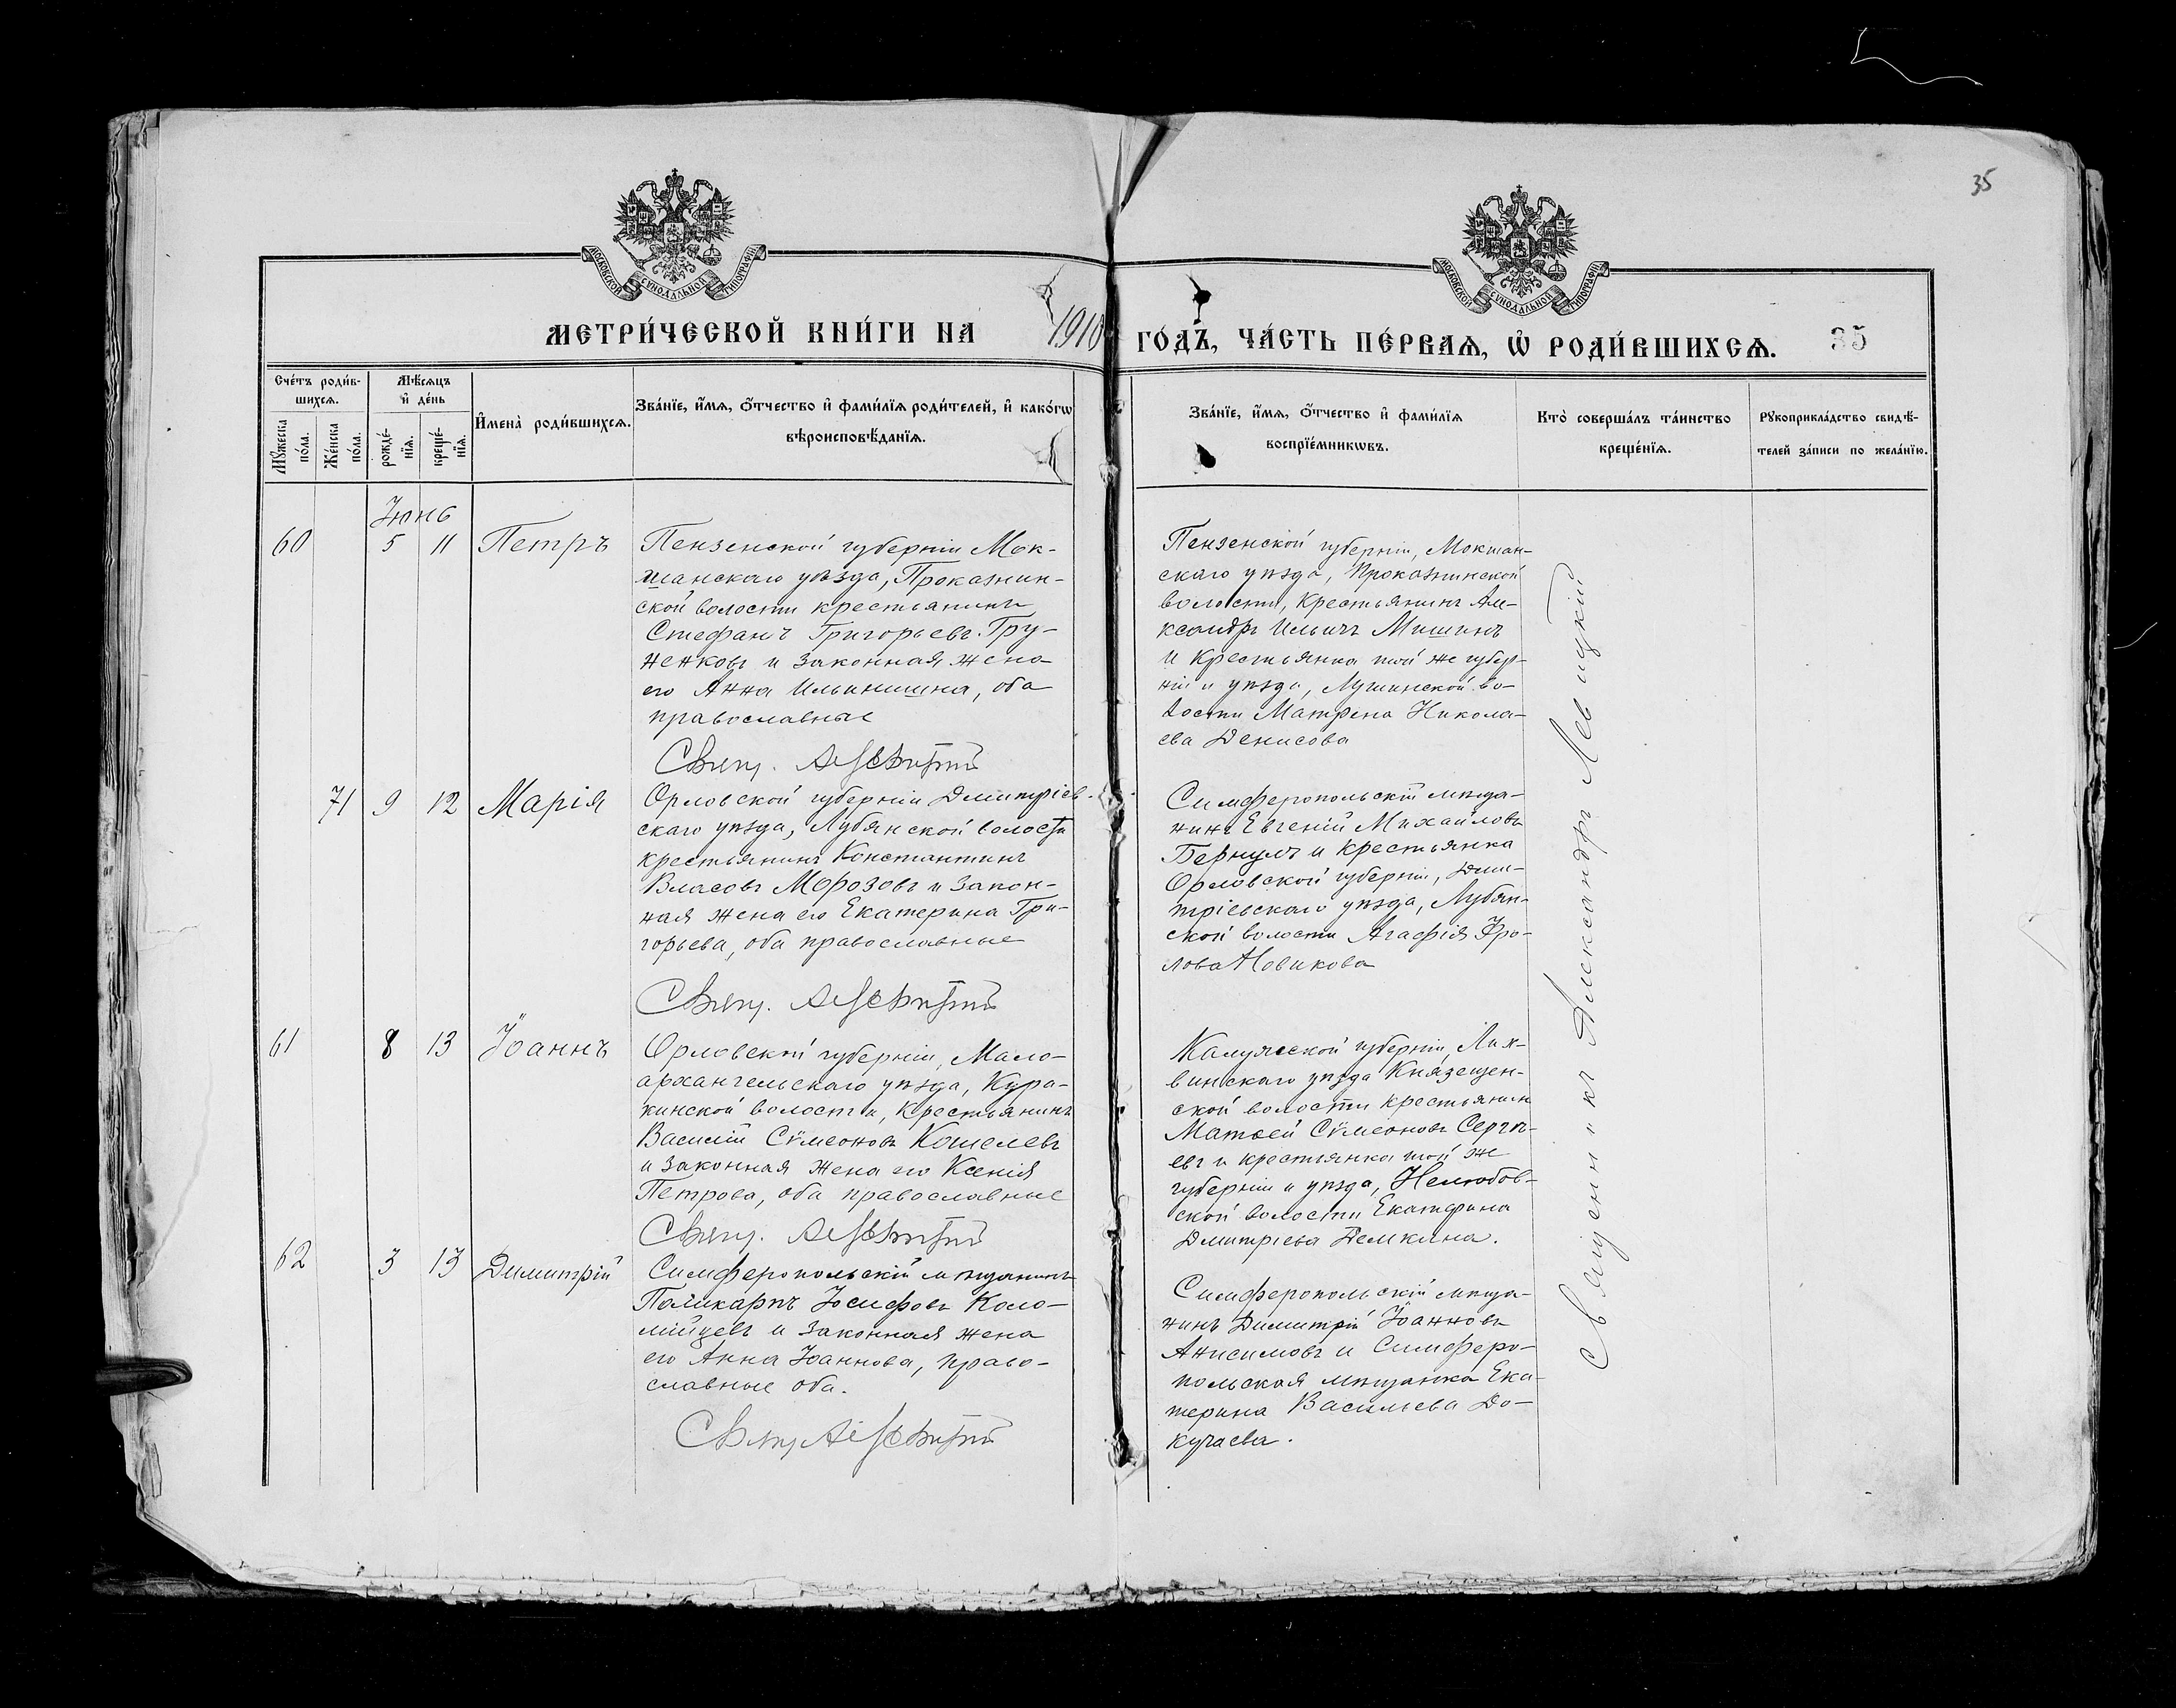 35
МОСКОВСКОЙ СѴНОДАЛЬНОЙ ТИПОГРАФІИ
МОСКОВСКОЙ СѴНОДАЛЬНОЙ ТИПОГРАФІИ
МЕТРИ́ЧЕСКОЙ КНИ́ГИ НА 1910 ГО́ДЪ, ЧА́СТЬ ПЕ́РВАѦ, Ѡ҆ РОДИ́ВШИХСѦ. 35
Счéтъ роди́в-
шихсѧ.
Мꙋ́жеска по́ла.
Же́нска по́ла.
Мѣ́сѧцъ
и҆ де́нь
рожде́-
нїѧ.
креще́-
нїѧ.
И҆мена̀ роди́вшихсѧ.
Зва́нїе, и҆́мѧ, ѻ҆́тчество и҆ фами́лїѧ роди́телей, и҆ како́гѡ
вѣроисповѣ́данїѧ.
Зва́нїе, и҆́мѧ, ѻ҆́тчество и҆ фами́лїѧ
воспрїе́мникѡвъ.
Кто̀ соверша́лъ та́инство
креще́нїѧ.
Рꙋкоприкла́дство свидѣ́-
телей за́писи по жела́нїю.
Іюнь
60 5 11 Петръ
Пензенской губерніи Мок-
шанскаго уѣзда, Проказнин-
ской волости крестьянинъ
Стефанъ Григорьевъ Гру-
ненковъ и законная жена
его Анна Ильинишна, оба
православные
Свящ. А Левитскій
Пензенской губерніи, Мокшан-
скаго уѣзда, Проказнинской
волости, Крестьянинъ Але-
ксандръ Ильичъ Мишинъ
и Крестьянка той же губер-
ніи и уѣзда, Лунинской во-
лости Матрена Никола-
ева Денисова
71 9 12 Марія
Орловской губерніи Дмитріев-
скаго уѣзда, Лубянской волости
крестьянинъ Константинъ
Власовъ Морозовъ и закон-
ная жена его Екатерина Гри-
горьева, оба православные
Свящ. А Левитскій
Симферопольскій мѣща-
нинъ Евгеній Михайловъ
Бернулъ и крестьянка
Орловской губерніи, Дми-
тріевскаго уѣзда, Лубян-
ской волости Агафія Фро-
лова Новикова
61 8 13 Іоаннъ
Орловской губерніи, Мало-
архангельскаго уѣзда, Кура-
кинской волости, Крестьянинъ
Василій Сѵмеоновъ Кошелевъ
и законная жена его Ксенія
Петрова, оба православные
Свящ. А Левитскій
Калужской губерніи, Лих-
винскаго уѣзда Князещен-
ской волости крестьянинъ
Матѳей Сѵмеоновъ Сергѣ-
евъ и крестьянка той же
губерніи и уѣзда, Нелюбов-
ской волости Екатерина
Дмитріева Демкина.
62 3 13 Димитрій
Симферопольскій мѣщанинъ
Поликарпъ Іосифовъ Коло-
мійцевъ и законная жена
его Анна Іоаннова, право-
славные оба.
Свящ А Левитскій
Симферопольскій мѣща-
нинъ Димитрій Іоанновъ
Анисимовъ и Симферо-
польская мѣщанка Ека-
терина Васильева До-
кучаева.
Священникъ Александръ Левицкій